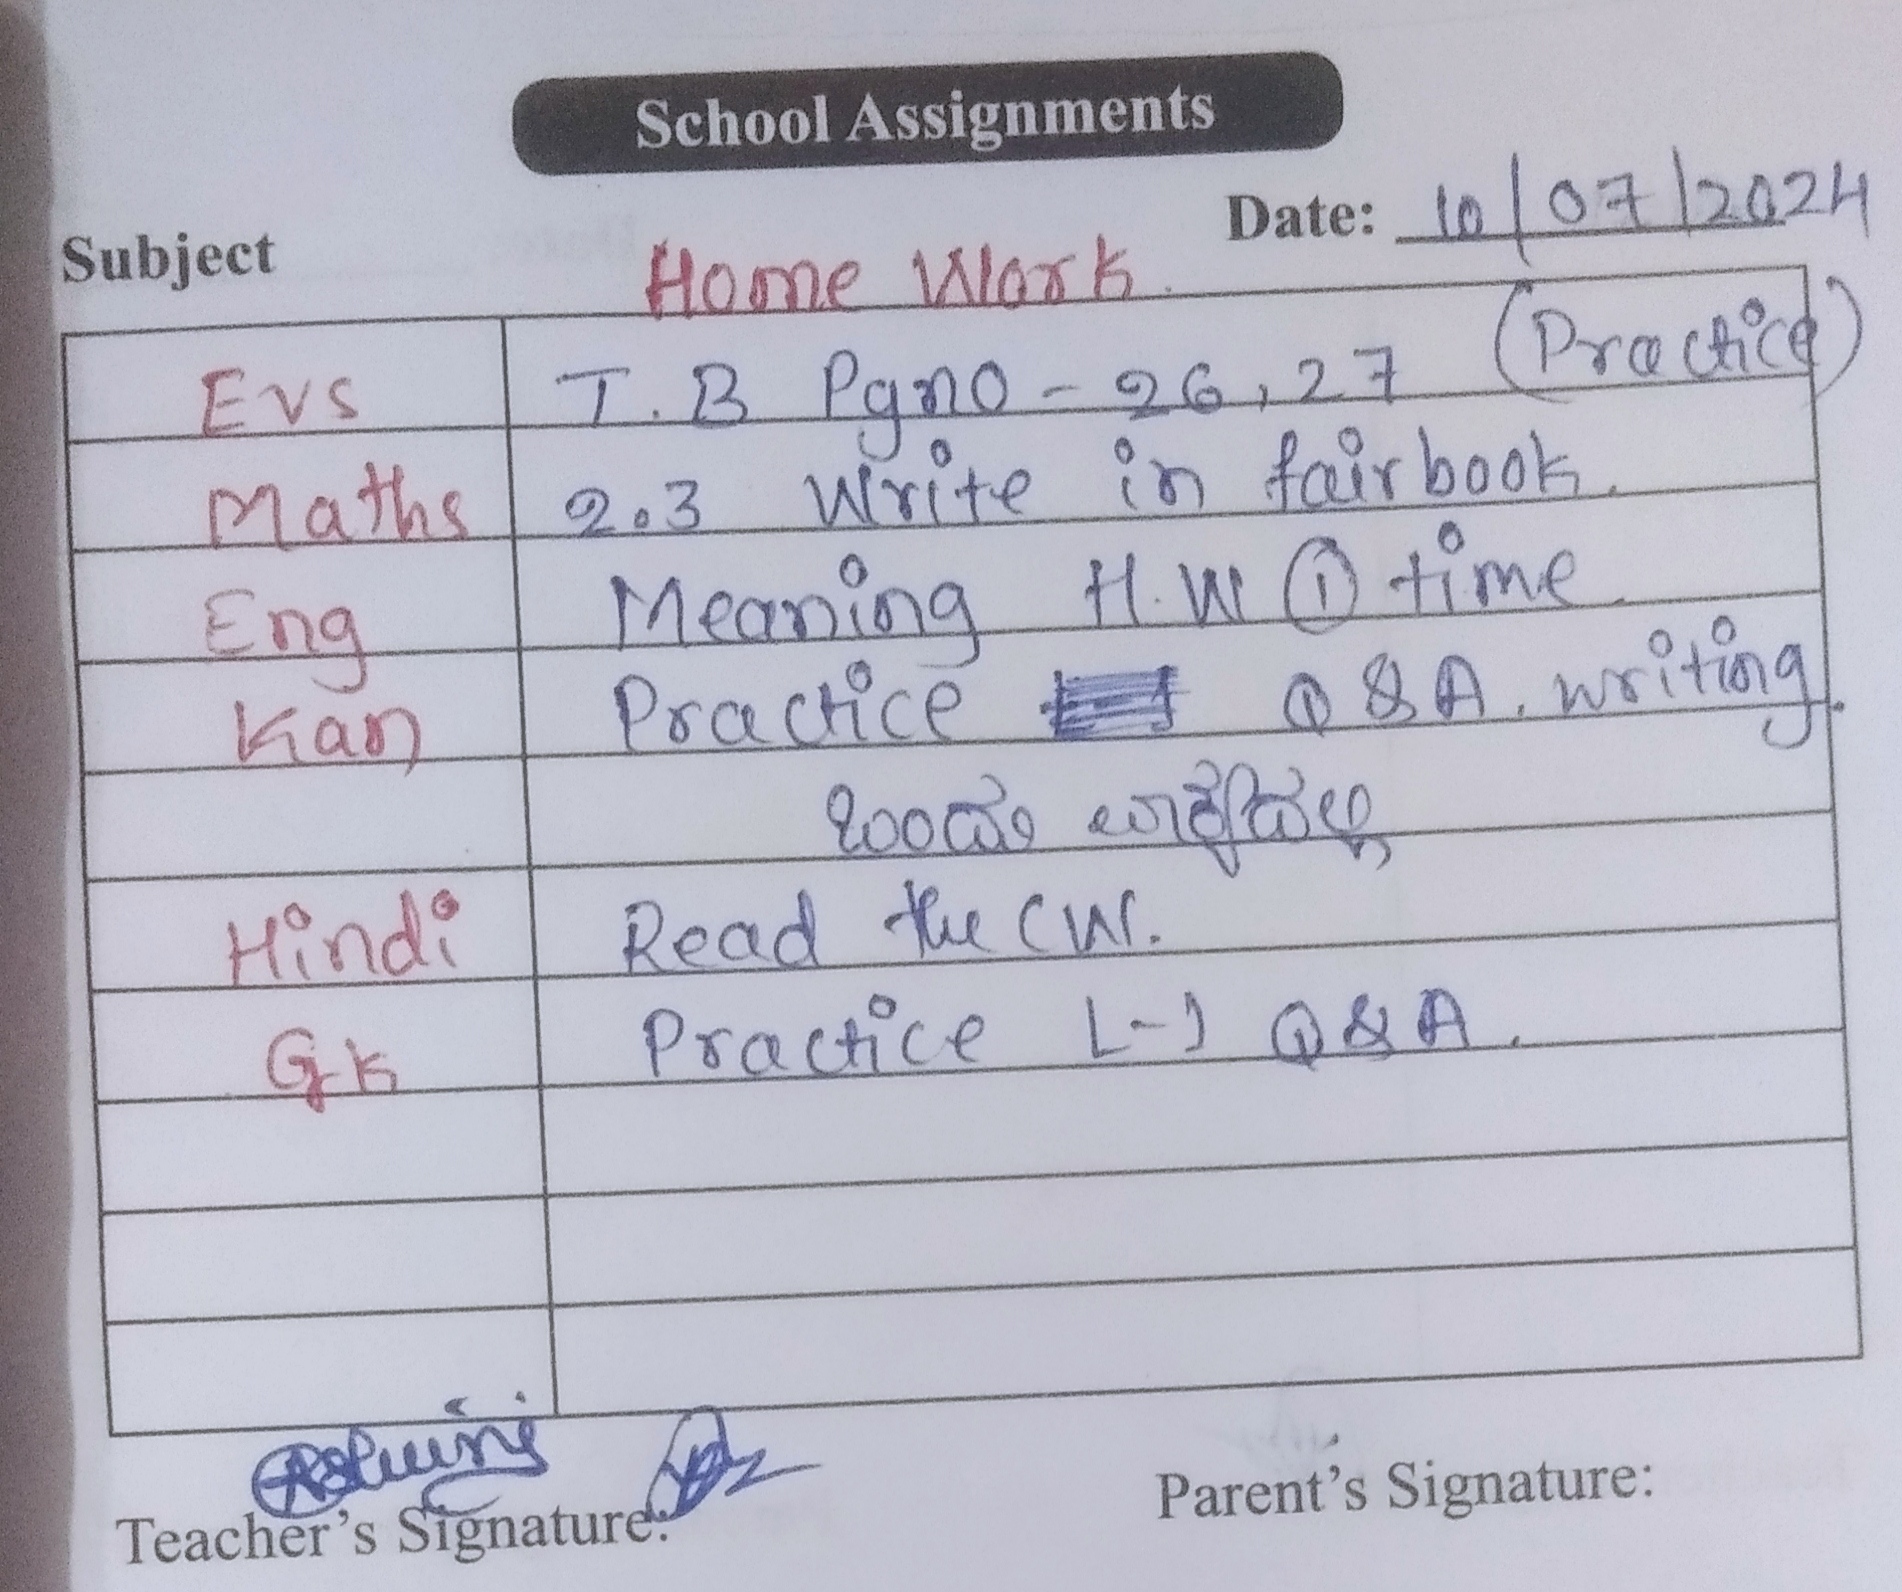 School Assignments
Date: 10/07/2024
Subject
Home Work.
Evs T.B Pgno - 26, 27 (Practice)
Maths 2.3 Write in fairbook.
Eng Meaning H.W ① time.
Kan Practice Q & A. writing.
ಒಂದು
Hindi Read the CW.
Gk Practice L-1 Q & A.
Teacher's Signature:
Parent's Signature: